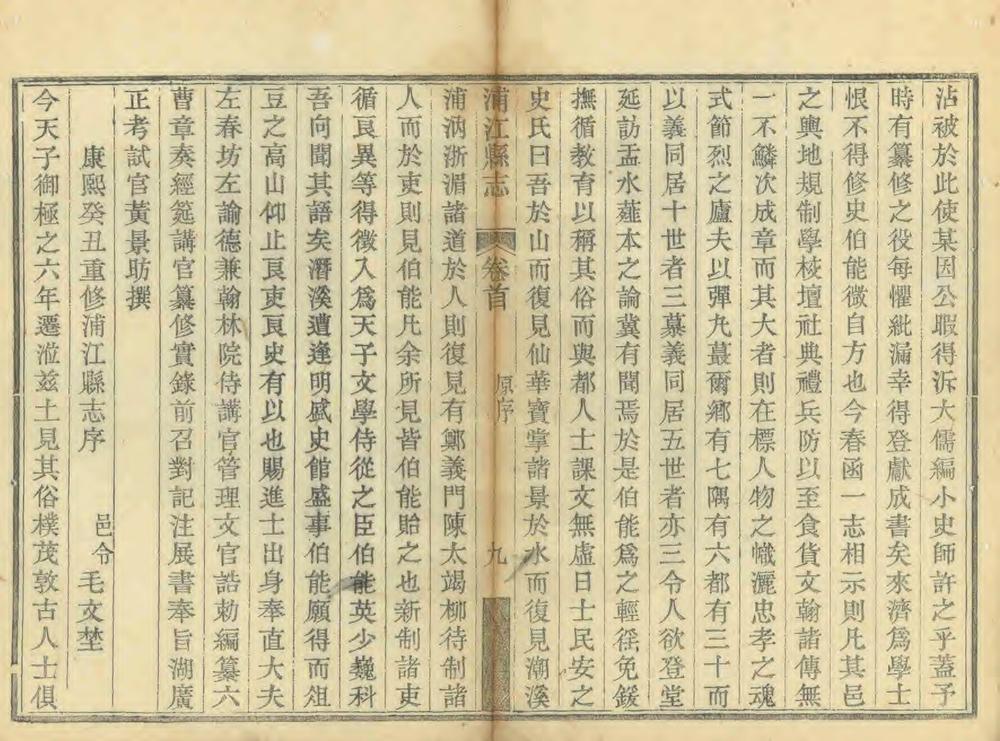 沾被於此使某因公暇得泝大儒編小史師許之乎蓋予
時有纂修之役每懼紕漏幸得登獻成書矣來濟爲學士
恨不得修史伯能微自方也今春函一志相示則凡其邑
之輿地規制學校壇社典禮兵防以至食貨文翰諸傳無
一不鱗次成章而其大者則在標人物之幟灑忠孝之魂
式節烈之廬夫以彈丸蕞爾鄉有七隅有六都有三十而
以義同居十世者三慕義同居五世者亦三令人欲登堂
延訪盂水薤本之論冀有聞焉於是伯能爲之輕徭免鍰
撫循教育以稱其俗而與都人士課文無虛日士民安之
史氏曰吾於山而復見仙華寶掌諸景於水而復見潮溪
浦江縣志 卷首 原序 九
浦汭浙湄諸道於人則復見有鄭義門陳太竭柳待制諸
人而於吏則見伯能凡余所見皆伯能貽之也新制諸吏
循良異等得徵入爲天子文學侍從之臣伯能英少巍科
吾向聞其語矣潛溪遭逢明盛史館盛事伯能願得而俎
豆之高山仰止良吏良史有以也賜進士出身奉直大夫
左春坊左諭德兼翰林院侍講官管理文官誥勅編纂六
曹章奏經筵講官纂修實錄前召對記注展書奉旨湖廣
正考試官黃景昉撰
康熙癸丑重修浦江縣志序 邑令毛文埜
今天子御極之六年遷涖兹土見其俗樸茂敦古人士俱